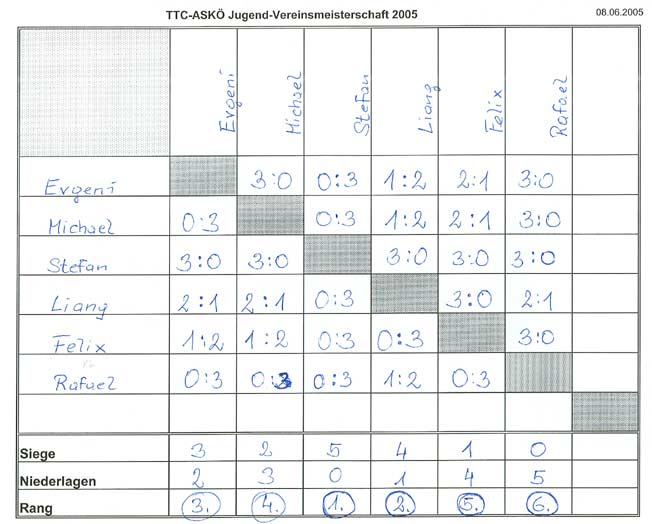 TTC-ASKÖ Jugend-Vereinsmeisterschaft 2005 08.06.2005
Evgeni Michael Stefan Liang Felix Rafael
Evgeni 3:0 0:3 1:2 2:1 3:0
Michael 0:3 0:3 1:2 2:1 3:0
Stefan 3:0 3:0 3:0 3:0 3:0
Liang 2:1 2:1 0:3 3:0 2:1
Felix 1:2 1:2 0:3 0:3 3:0
Rafael 0:3 0:3 0:3 1:2 0:3
Siege 3 2 5 4 1 0
Niederlagen 2 3 0 1 4 5
Rang 3. 4. 1. 2. 5. 6.